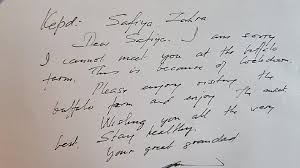 Safiya Zohra
Dear Safiya. I am sorry
I cannot meet you at the buffalo
farm. This is because of lockdown.
Please enjoy visiting the
buffalo farm and enjoy the meat
Wishing you all the very
best. Stay healthy.
Your great grandad